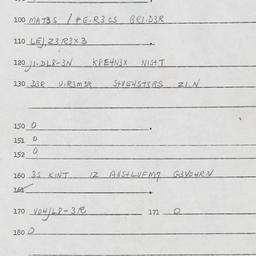 100 MAT3S / PE.R3CS BRI.D3R
110 LEJ,Z3R3X3.
120 JI.DL8-3N K8E4N3X NIS+T
130 D3R V.R3M3R S+VE4STSRS ZI.N
150 O.
151 O
152 O
160 3S KINT IZ ANS+LVFM7 G3VO4RN
161
170 VO4JL8-3R 171 O
180 O